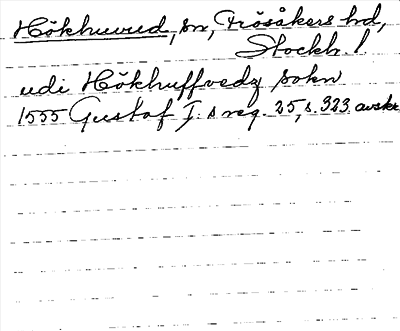 Hökhuvud, sn, Frösåkers hd,
Stockh. l.
udi Hökhuffvedz sokn
1555 Gustaf I:s reg. 25, s. 323 avskr.